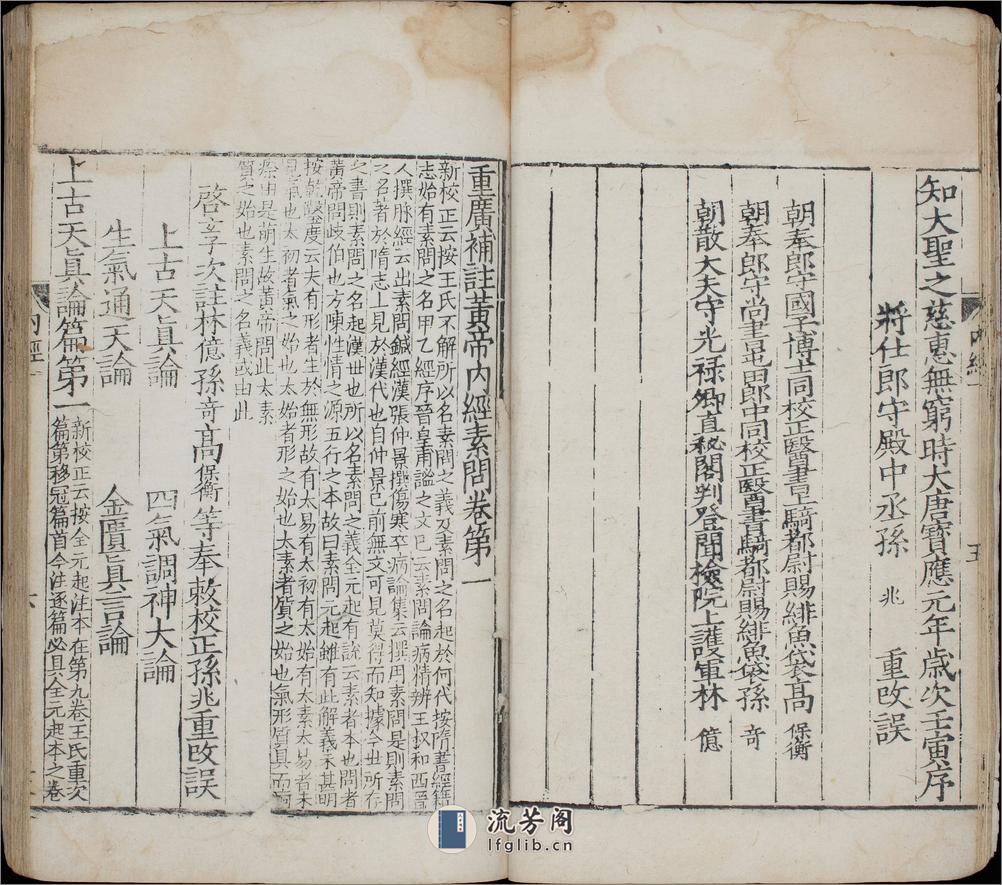 知大聖之慈惠無窮時大唐寶應元年歲次壬寅序
將仕郎守殿中丞孫 兆 重改誤
朝奉郎守國子博士同校正醫書上騎都尉賜緋魚袋高 保衡
朝奉郎守尚書屯田郎中同校正醫書騎都尉賜緋魚袋孫 奇
朝散大夫守光祿卿直秘閣判登聞檢院上護軍林 億
重廣補註黃帝內經素問卷第一
新校正云按王氏不解所以名素問之義及素問之名起於何代按隋書經籍
志始有素問之名甲乙經序晉皇甫謐之文已云素問論病精辨王叔和西晉
人撰脉經云出素問鍼經漢張仲景撰傷寒卒病論集云撰用素問是則素問
之名著於隋志上見於漢代也自仲景已前無文可見莫得而知據今世所存
之書則素問之名起漢世也所以名素問之義全元起有說云素者本也問者
黃帝問歧伯也方陳性情之源五行之本故曰素問元起雖有此解義未甚明
按乾鑿度云夫有形者生於無形故有太易有太初有太始有太素太易者未
見氣也太初者氣之始也太始者形之始也太素者質之始也氣形質具而痾
瘵由是萌生故黃帝問此太素
質之始也素問之名義或由此
啓玄子次註林億孫奇高保衡等奉敕校正孫兆重改誤
上古天真論 四氣調神大論
生氣通天論 金匱真言論
上古天真論篇第一
新校正云按全元起注本在第九卷王氏重次
篇第移冠篇首今注逐篇必具全元起本之卷
內經一
五
內經一
六
流芳阁
lfglib.cn